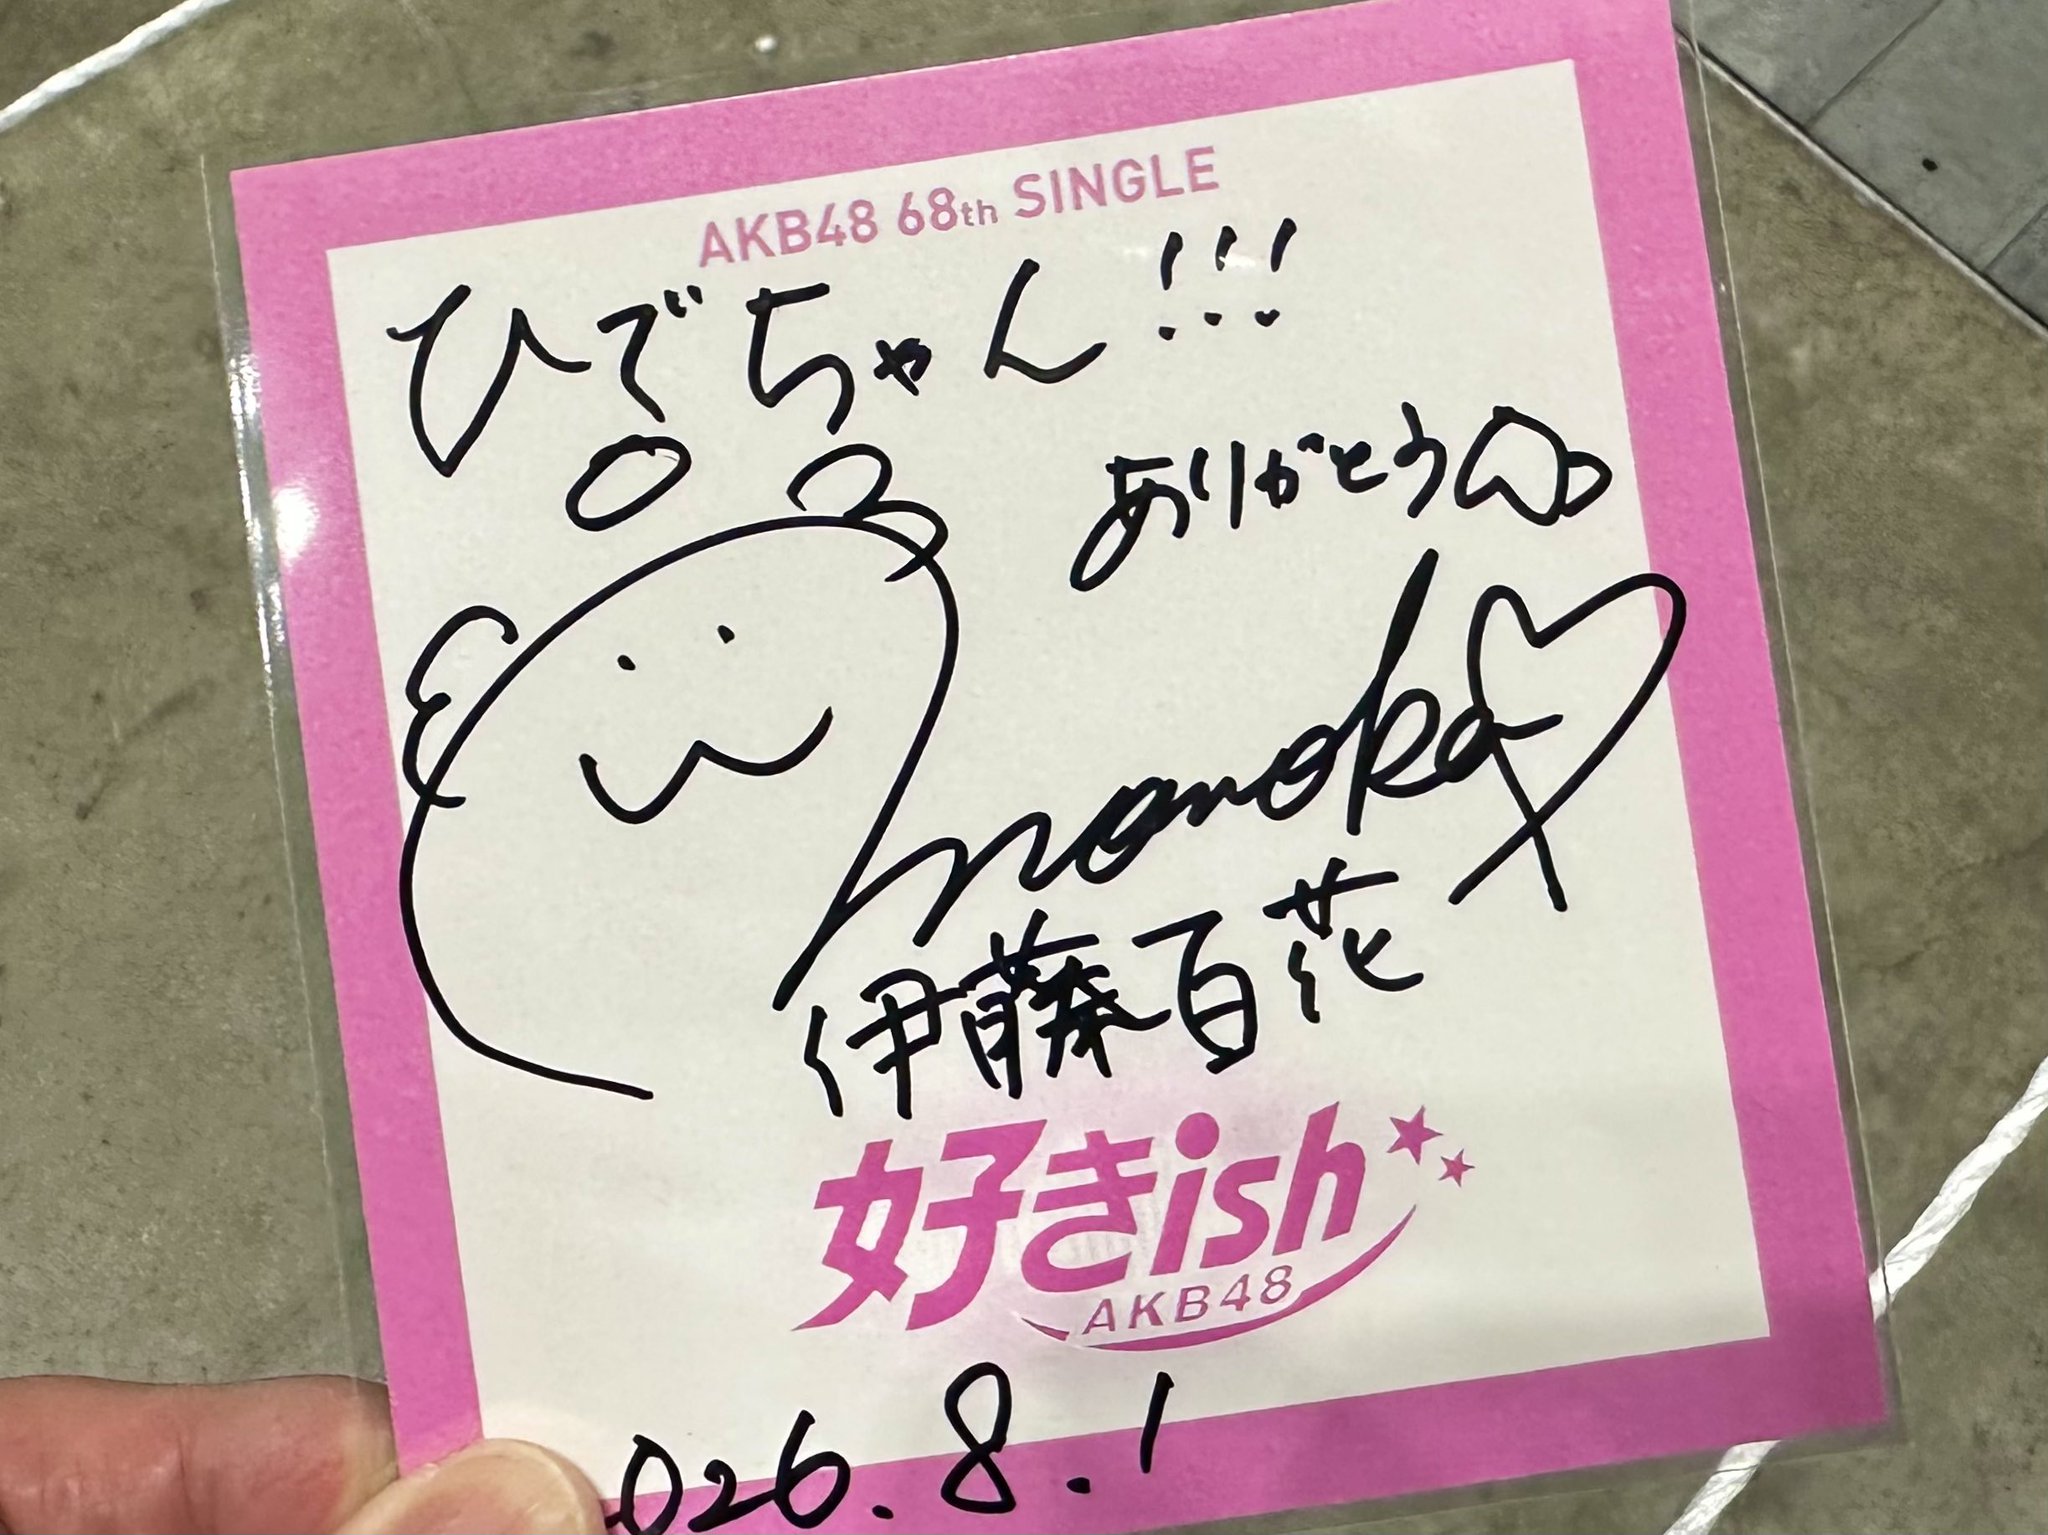 AKB48 68th SINGLE
ひでちゃん!!!
ありがとう
momoka
伊藤百花
好きish
AKB48
2026.8.1